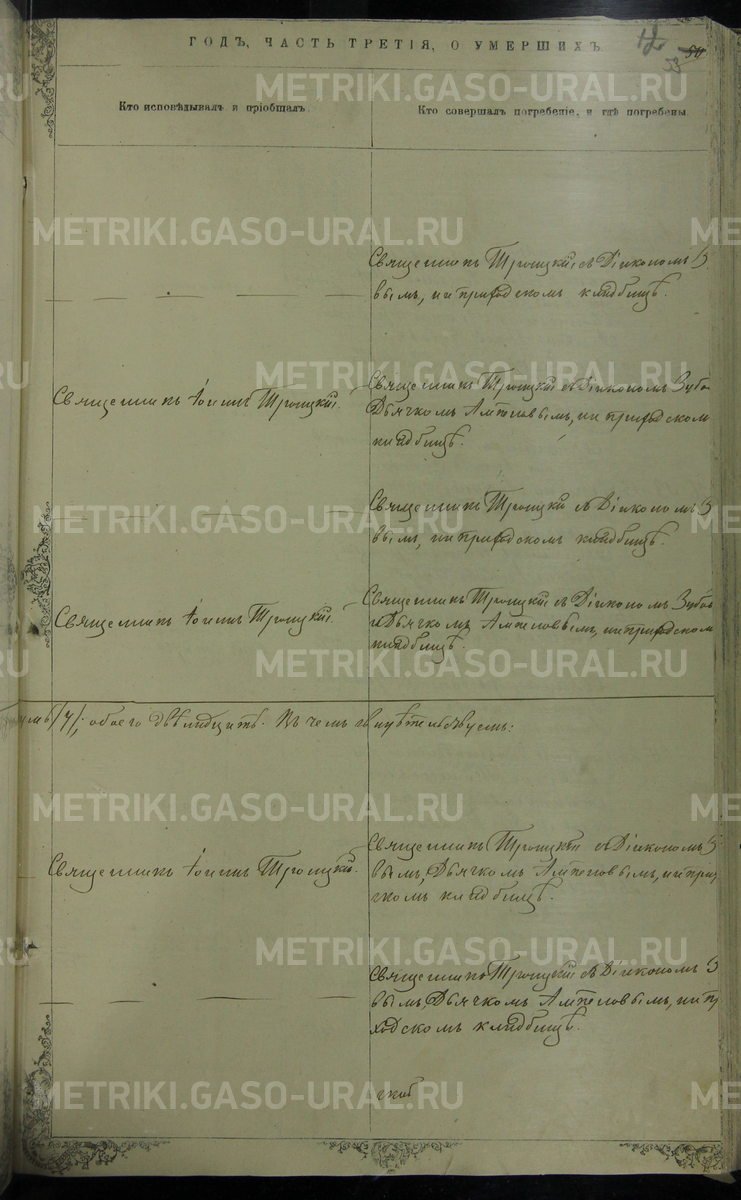 ГОДЪ, ЧАСТЬ ТРЕТІЯ, О УМЕРШИХЪ.
53
Кто исповѣдывалъ и пріобщалъ.
Кто совершалъ погребеніе, и гдѣ погребены.
Священникъ Троицкій съ Діакономъ З
вымъ, на приходскомъ кладбищѣ.
Священникъ Іоаннъ Троицкій.
Священникъ Троицкій съ Діакономъ Зубо
Дьячкомъ Ампеловымъ, на приходскомъ
кладбищѣ.
Священникъ Троицкій съ Діакономъ З
вымъ, на приходскомъ кладбищѣ.
Священникъ Іоаннъ Троицкій.
Священникъ Троицкій съ Діакономъ Зубов
и Дьячкомъ Ампеловымъ, на приходском
кладбищѣ.
/7/; обоего двѣнадцать. Въ чемъ свидѣтельствуемъ:
Священникъ Іоаннъ Троицкій.
Священникъ Троицкій съ Діакономъ З
вымъ, Дьячкомъ Ампеловымъ, на прих
скомъ кладбищѣ.
Священникъ Троицкій съ Діакономъ З
вымъ, Дьячкомъ Ампеловымъ, на пр
ходскомъ кладбищѣ.
METRIKI.GASO-URAL.RU